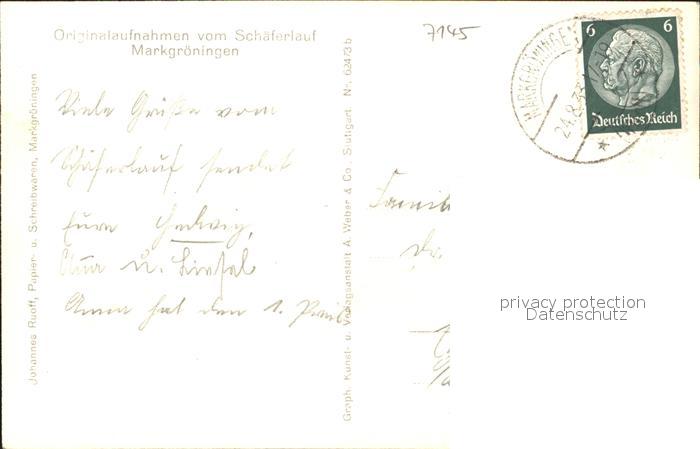 Originalaufnahmen vom Schäferlauf
Markgröningen
7145
Viele Grüße vom
Schäferlauf sendet
Eure Hedwig,
Anna u. Liesel
Anna hat den 1. Preis
Johannes Ruoff, Papier- u. Schreibwaren, Markgröningen
Graph. Kunst- u. Verlagsanstalt A. Weber & Co., Stuttgart. Nr. 62473b
MARKGRÖNINGEN
24.8.
6 6
Deutsches Reich
Famil
Dr.
privacy protection
Datenschutz